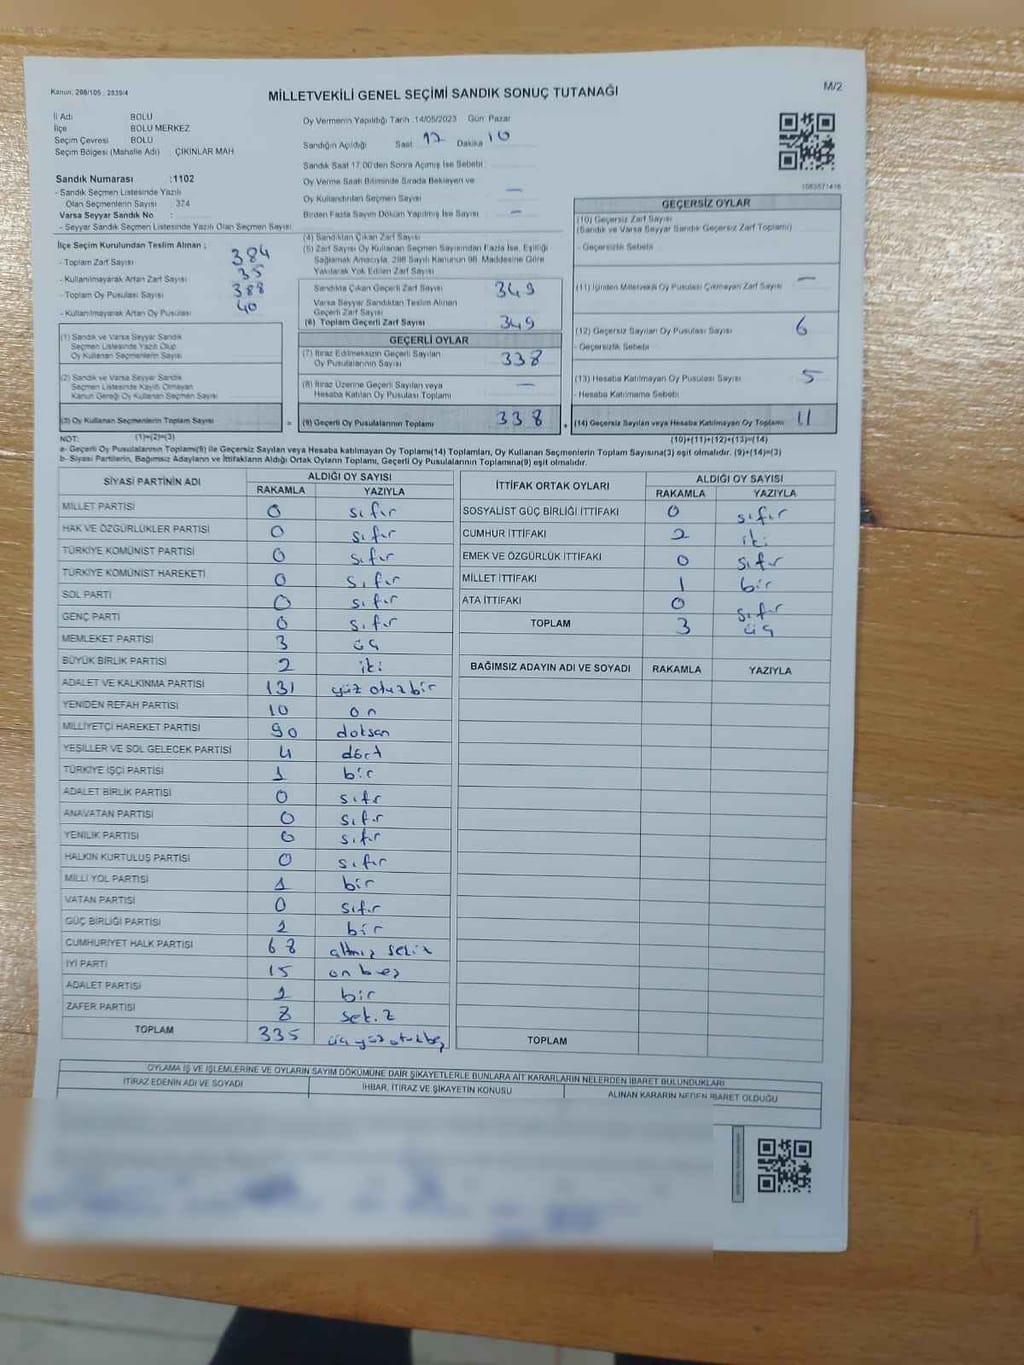 Kanun, 298/105 ; 2839/4
MİLLETVEKİLİ GENEL SEÇİMİ SANDIK SONUÇ TUTANAĞI
M/2
İl Adı BOLU
İlçe BOLU MERKEZ
Seçim Çevresi BOLU
Seçim Bölgesi (Mahalle Adı) ÇIKINLAR MAH.
Oy Vermenin Yapıldığı Tarih :14/05/2023 Gün: Pazar
Sandığın Açıldığı Saat 17 Dakika 10
Sandık Saat 17:00'den Sonra Açılmış İse Sebebi
Oy Verme Saati Bitiminde Sırada Bekleyen ve
Oy Kullandırılan Seçmen Sayısı —
Birden Fazla Sayım Döküm Yapılmış İse Sayısı —
Sandık Numarası :1102
- Sandık Seçmen Listesinde Yazılı
Olan Seçmenlerin Sayısı : 374
Varsa Seyyar Sandık No :
- Seyyar Sandık Seçmen Listesinde Yazılı Olan Seçmen Sayısı
İlçe Seçim Kurulundan Teslim Alınan ;
- Toplam Zarf Sayısı 384
- Kullanılmayarak Artan Zarf Sayısı 35
- Toplam Oy Pusulası Sayısı 388
- Kullanılmayarak Artan Oy Pusulası 40
(1) Sandık ve Varsa Seyyar Sandık
Seçmen Listesinde Yazılı Olup
Oy Kullanan Seçmenlerin Sayısı
(2) Sandık ve Varsa Seyyar Sandık
Seçmen Listesinde Kayıtlı Olmayan
Kanun Gereği Oy Kullanan Seçmen Sayısı
(3) Oy Kullanan Seçmenlerin Toplam Sayısı =
(4) Sandıktan Çıkan Zarf Sayısı
(5) Zarf Sayısı Oy Kullanan Seçmen Sayısından Fazla İse, Eşitliği
Sağlamak Amacıyla, 298 Sayılı Kanunun 98. Maddesine Göre
Yakılarak Yok Edilen Zarf Sayısı
Sandıkta Çıkan Geçerli Zarf Sayısı 349
Varsa Seyyar Sandıktan Teslim Alınan
Geçerli Zarf Sayısı
(6) Toplam Geçerli Zarf Sayısı 349
GEÇERLİ OYLAR
(7) İtiraz Edilmeksizin Geçerli Sayılan
Oy Pusulalarının Sayısı 338
(8) İtiraz Üzerine Geçerli Sayılan veya
Hesaba Katılan Oy Pusulası Toplamı —
(9) Geçerli Oy Pusulalarının Toplamı 338 +
1083571416
GEÇERSİZ OYLAR
(10) Geçersiz Zarf Sayısı
(Sandık ve Varsa Seyyar Sandık Geçersiz Zarf Toplamı)
- Geçersizlik Sebebi
(11) İçinden Milletvekili Oy Pusulası Çıkmayan Zarf Sayısı —
(12) Geçersiz Sayılan Oy Pusulası Sayısı 6
- Geçersizlik Sebebi
(13) Hesaba Katılmayan Oy Pusulası Sayısı 5
- Hesaba Katılmama Sebebi
(14) Geçersiz Sayılan veya Hesaba Katılmayan Oy Toplamı 11
NOT: (1)+(2)=(3) (10)+(11)+(12)+(13)=(14)
a- Geçerli Oy Pusulalarının Toplamı(9) ile Geçersiz Sayılan veya Hesaba katılmayan Oy Toplamı(14) Toplamları, Oy Kullanan Seçmenlerin Toplam Sayısına(3) eşit olmalıdır. (9)+(14)=(3)
b- Siyasi Partilerin, Bağımsız Adayların ve İttifakların Aldığı Ortak Oyların Toplamı, Geçerli Oy Pusulalarının Toplamına(9) eşit olmalıdır.
SİYASİ PARTİNİN ADI ALDIĞI OY SAYISI
RAKAMLA YAZIYLA
MİLLET PARTİSİ 0 sıfır
HAK VE ÖZGÜRLÜKLER PARTİSİ 0 sıfır
TÜRKİYE KOMÜNİST PARTİSİ 0 sıfır
TÜRKİYE KOMÜNİST HAREKETİ 0 sıfır
SOL PARTİ 0 sıfır
GENÇ PARTİ 0 sıfır
MEMLEKET PARTİSİ 3 üç
BÜYÜK BİRLİK PARTİSİ 2 iki
ADALET VE KALKINMA PARTİSİ 131 yüz otuz bir
YENİDEN REFAH PARTİSİ 10 on
MİLLİYETÇİ HAREKET PARTİSİ 90 doksan
YEŞİLLER VE SOL GELECEK PARTİSİ 4 dört
TÜRKİYE İŞÇİ PARTİSİ 1 bir
ADALET BİRLİK PARTİSİ 0 sıfır
ANAVATAN PARTİSİ 0 sıfır
YENİLİK PARTİSİ 0 sıfır
HALKIN KURTULUŞ PARTİSİ 0 sıfır
MİLLİ YOL PARTİSİ 1 bir
VATAN PARTİSİ 0 sıfır
GÜÇ BİRLİĞİ PARTİSİ 1 bir
CUMHURİYET HALK PARTİSİ 68 altmış sekiz
İYİ PARTİ 15 on beş
ADALET PARTİSİ 1 bir
ZAFER PARTİSİ 8 sekiz
TOPLAM 335 üç yüz otuz beş
İTTİFAK ORTAK OYLARI ALDIĞI OY SAYISI
RAKAMLA YAZIYLA
SOSYALİST GÜÇ BİRLİĞİ İTTİFAKI 0 sıfır
CUMHUR İTTİFAKI 2 iki
EMEK VE ÖZGÜRLÜK İTTİFAKI 0 sıfır
MİLLET İTTİFAKI 1 bir
ATA İTTİFAKI 0 sıfır
TOPLAM 3 üç
BAĞIMSIZ ADAYIN ADI VE SOYADI RAKAMLA YAZIYLA
TOPLAM
OYLAMA İŞ VE İŞLEMLERİNE VE OYLARIN SAYIM DÖKÜMÜNE DAİR ŞİKAYETLERLE BUNLARA AİT KARARLARIN NELERDEN İBARET BULUNDUKLARI
İTİRAZ EDENİN ADI VE SOYADI İHBAR, İTİRAZ VE ŞİKAYETİN KONUSU ALINAN KARARIN NEDEN İBARET OLDUĞU